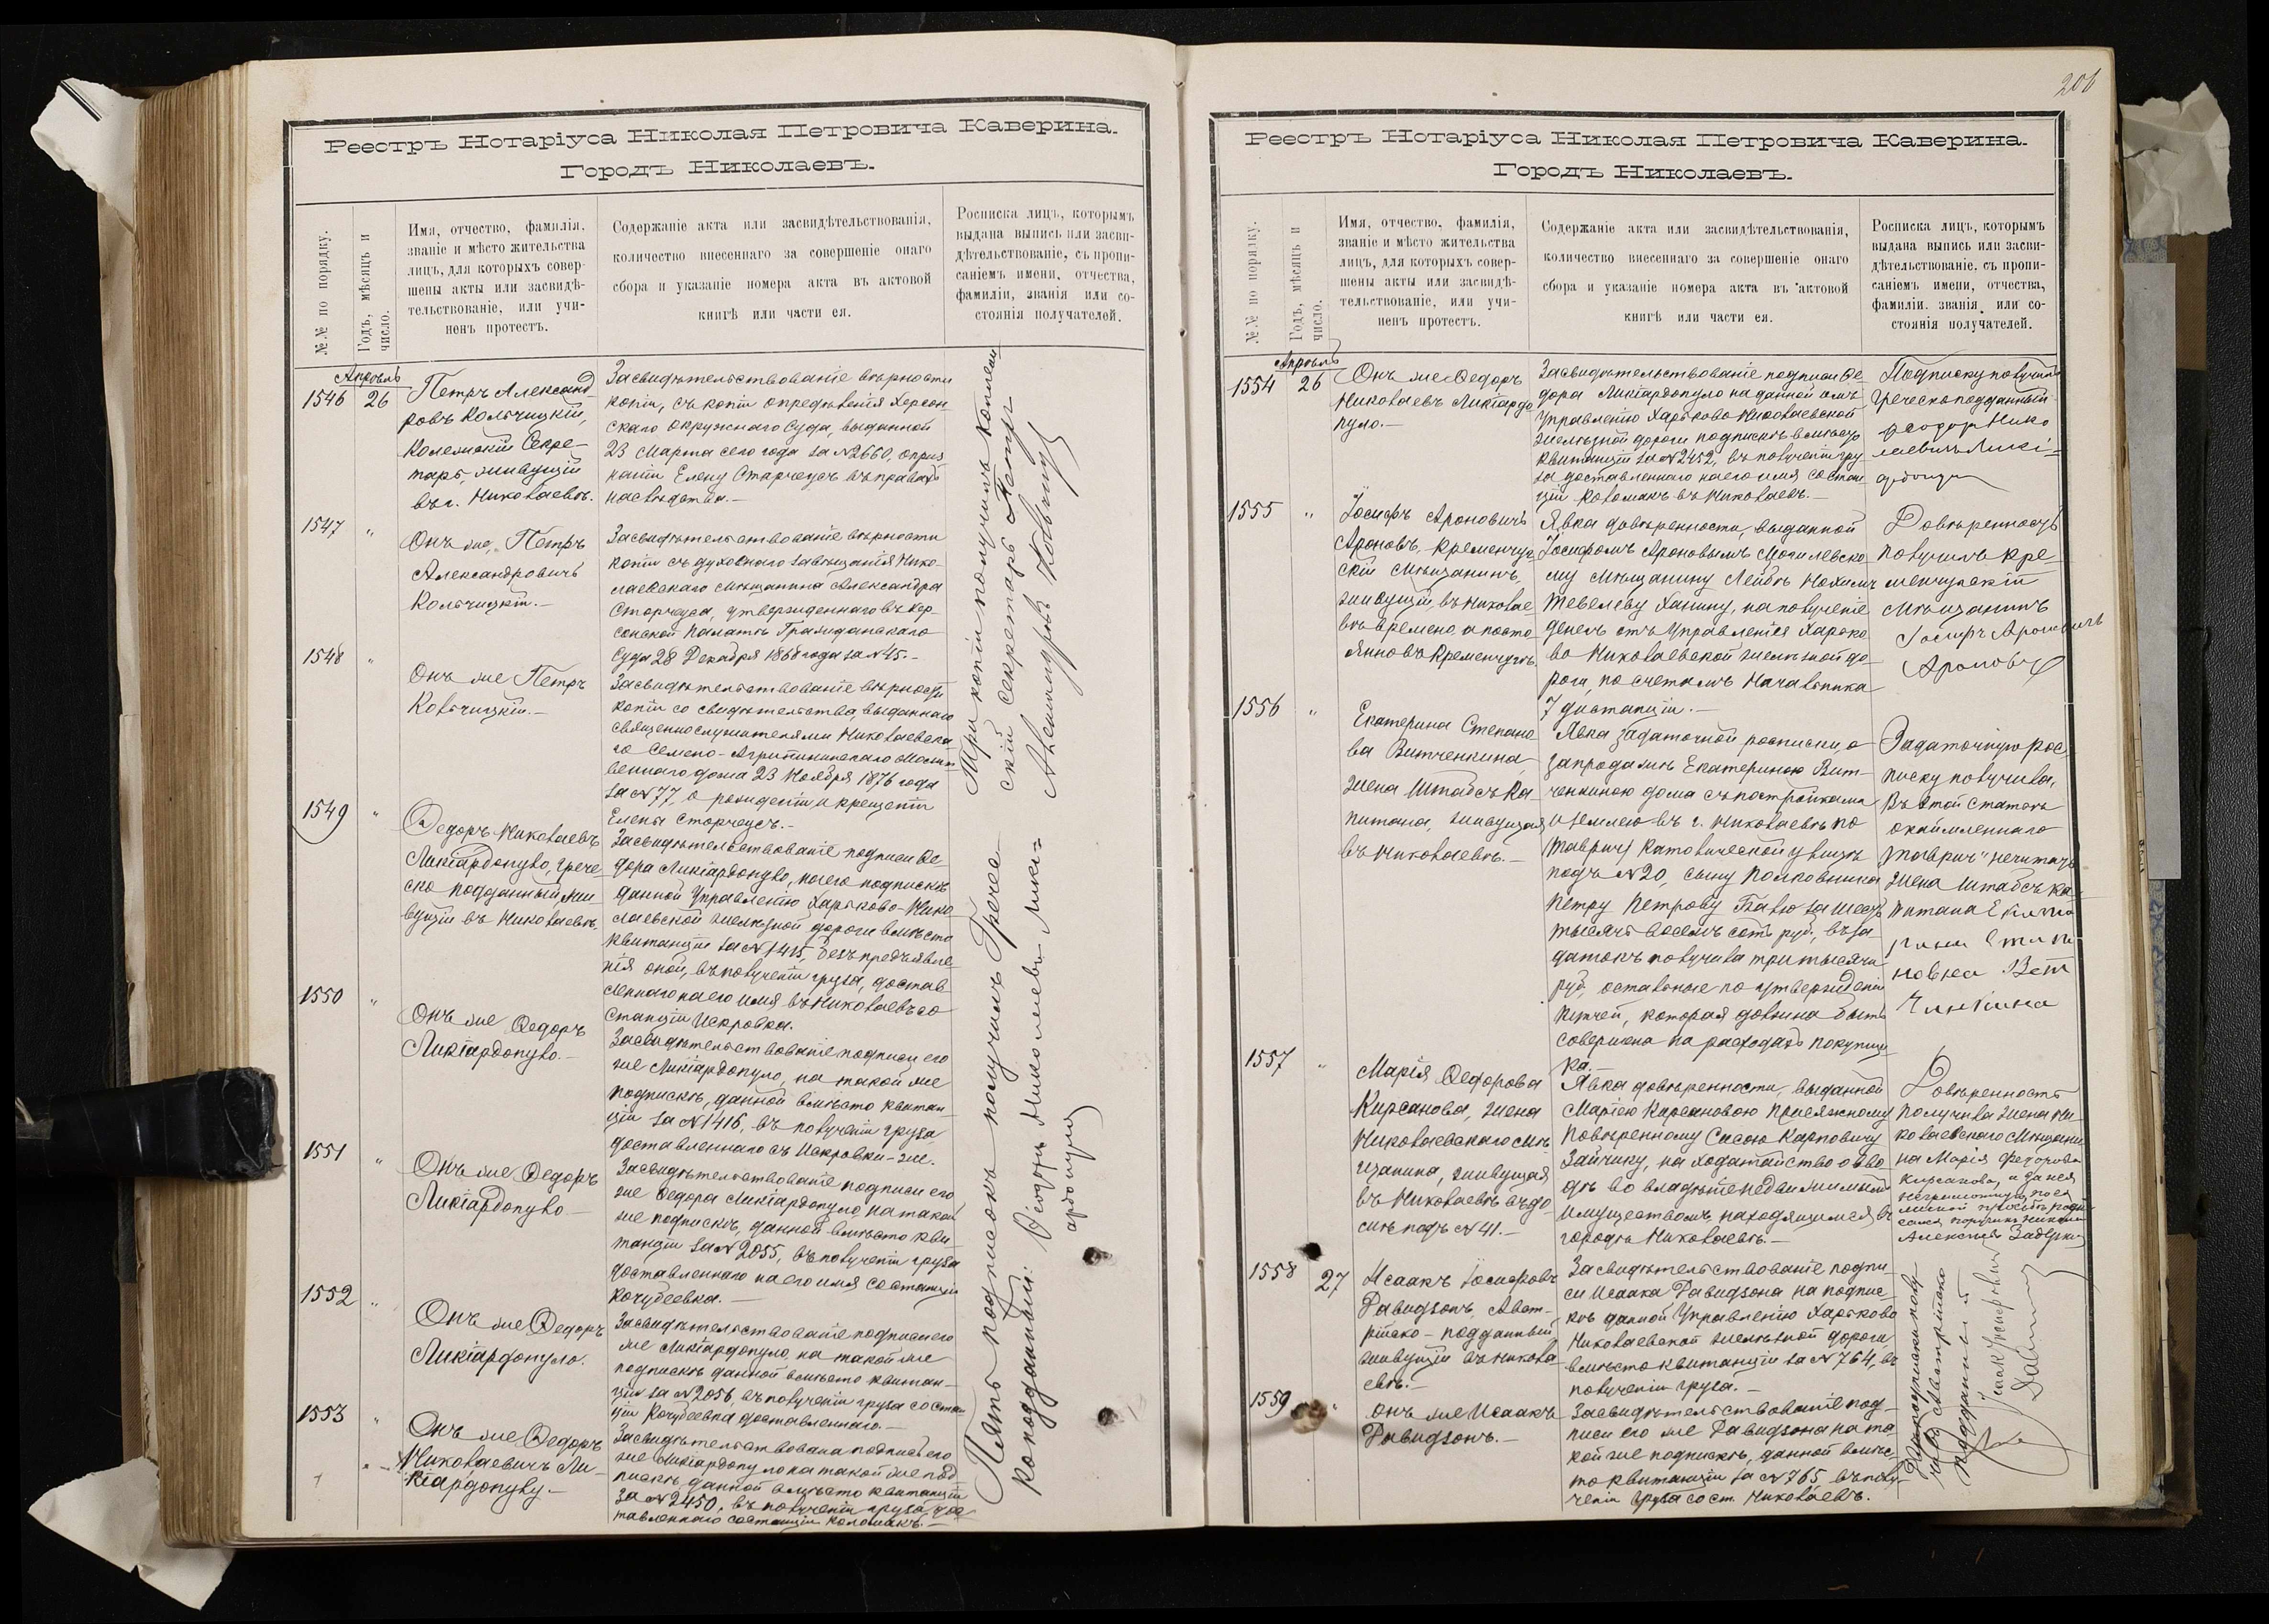 Реестръ Нотаріуса Николая Петровича Каверина.
Городъ Николаевъ.
№№ по порядку.
Годъ, мѣсяцъ и
число.
Имя, отчество, фамилія,
званіе и мѣсто жительства
лицъ, для которыхъ совер-
шены акты или засвидѣ-
тельствованіе, или учи-
ненъ протестъ.
Содержаніе акта или засвидѣтельствованія,
количество внесеннаго за совершеніе онаго
сбора и указаніе номера акта въ актовой
книгѣ или части ея.
Росписка лицъ, которымъ
выдана выпись или засви-
дѣтельствованіе, съ пропи-
саніемъ имени, отчества,
фамиліи, званія или со-
стоянія получателей.
Апрѣль
1546
26
Петръ Александ-
ровъ Кольчицкій,
Колежскій Секре-
тарь, живущій
въ г. Николаевѣ.
Засвидѣтельствованіе вѣрности
копіи, съ копіи опредѣленія Херсон-
скаго Окружнаго Суда, выданной
23 Марта сего года за №2660, о приз
наніи Елену Старчеусъ въ правахъ
наслѣдства.—
1547
"
Онъ же, Петръ
Александровичъ
Кольчицкій.—
Засвидѣтельствованіе вѣрности
копіи съ духовнаго завѣщанія Нико-
лаевскаго мѣщанина Александра
Старчеуса, утвержденнаго въ Хер-
сонской Палатѣ Гражданскаго
Суда 28 Декабря 1868 года за №45.—
1548
"
Онъ же Петръ
Кольчицкій.—
Засвидѣтельствованіе вѣрности
копіи со свидѣтельства, выданнаго
священнослужителями Николаевска
го Семено-Агрипининскаго Молит
веннаго дома 23 Ноября 1876 года
за №77, о рожденіи и крещеніи
Елены Старчеусъ.—
Три копіи получилъ Колеж
скій Секретарь Петръ
Александровъ Кольчицкій
1549
"
Ѳедоръ Николаевъ
Ликіардопуло, Грече-
ско подданный, жи-
вущій въ Николаевѣ.
Засвидѣтельствованіе подписи Ѳе
дора Ликіардопуло, на его подпискѣ
данной Управленію Харьково-Нико
лаевской желѣзной дороги вмѣсто
квитанціи за №1415, безъ предъявле
нія оной, въ полученіи груза, достав
леннаго на его имя, въ Николаевъ со
станціи Искровка.
1550
"
Онъ же Ѳедоръ
Ликіардопуло.—
Засвидѣтельствованіе подписи его
же Ликіардопуло, на такой же
подпискѣ, данной вмѣсто квитан-
ціи за №1416, въ полученіи груза
доставленнаго съ Искровки-же.
1551
"
Онъ же Ѳедоръ
Ликіардопуло—
Засвидѣтельствованіе подписи его
же Ѳедора Ликіардопуло, на такой
же подпискѣ, данной вмѣсто кви
танціи за №2055, въ полученіи груза
доставленнаго на его имя со станціи
Кочубеевка.—
1552
"
Онъ же Ѳедоръ
Ликіардопуло.
Засвидѣтельствованіе подписи его
же Ликіардопуло, на такой же
подпискѣ данной вмѣсто квитан-
ціи за №2056, въ полученіи груза со стан
ціи Кочубеевка доставленнаго.—
1553
"
Онъ же Ѳедоръ
Николаевичъ Ли-
кіардопуло.—
Засвидѣтельствована подпись его
же Ликіардопуло на такой же под
пискѣ, данной вмѣсто квитанціи
за №2450, въ полученіи груза дос
тавленнаго со станціи Коломакъ.—
Пять подписокъ получилъ Грече-
ско подданный: Ѳеодоръ Николаевъ Лики=
ардопуло
206
Реестръ Нотаріуса Николая Петровича Каверина.
Городъ Николаевъ.
№№ по порядку.
Годъ, мѣсяцъ и
число.
Имя, отчество, фамилія,
званіе и мѣсто жительства
лицъ, для которыхъ совер-
шены акты или засвидѣ-
тельствованіе, или учи-
ненъ протестъ.
Содержаніе акта или засвидѣтельствованія,
количество внесеннаго за совершеніе онаго
сбора и указаніе номера акта въ актовой
книгѣ или части ея.
Росписка лицъ, которымъ
выдана выпись или засви-
дѣтельствованіе, съ пропи-
саніемъ имени, отчества,
фамиліи, званія или со-
стоянія получателей.
Апрѣль
1554
26
Онъ же Ѳедоръ
Николаевъ Ликіардо
пуло.—
Засвидѣтельствованіе подписи Ѳе-
дора Ликіардопуло на данной имъ
Управленію Харьково Николаевской
желѣзной дороги подпискѣ вмѣсто
квитанціи за №2452, въ полученіи гру
за доставленнаго на его имя со стан
ціи Коломакъ въ Николаевъ.—
Подписку получилъ
Греческоподданный
Ѳеодоръ Нико
лаевичъ Ликі=
ардопуло
1555
"
Іосифъ Ароновичъ
Ароновъ, Кременчуг
скій Мѣщанинъ,
живущій въ Николае
вѣ времено, а посто
янно въ Кременчугѣ.
Явка довѣренности, выданной
Іосифомъ Ароновымъ Могилевско
му Мѣщанину Лейбѣ Нохимъ
Тевелеву Ханину, на полученіе
денегъ отъ Управленія Харько
во Николаевской желѣзной до-
роги, по счетамъ Начальника
7 дистанціи.—
Довѣренность
получилъ Кре-
менчугскій
Мѣщанинъ
Іосифъ Ароновичъ
Ароновъ
1556
"
Екатерина Степано
ва Витченкина,
жена Штабсъ Ка-
питана, живущая
въ Николаевѣ.—
Явка задаточной росписки, о
запродажѣ Екатериною Вит-
ченкиною дома съ постройками
и землею въ г. Николаевѣ по
Таврич) Католической улицѣ
подъ №20, сыну Полковника
Петру Петрову за шесть
тысячъ восемь сотъ руб., въ за
датокъ получила три тысячи
руб, остальные по утвержденіи
купчей, которая должна быть
совершена на расходахъ покупщи
ка.—
Задаточную рос-
писку получила,
Въ этой статьѣ
окаймленнаго
"Таврич" нечитать
Жена Штабсъ ка-
питана Екате
рина Степа
новна Вит
ченкина
1557
"
Марія Ѳедорова
Кирсанова, жена
Николаевскаго Мѣ-
щанина, живущая
въ Николаевѣ въ до-
мѣ подъ №41.—
Явка довѣренности, выданной
Маріею Кирсановою Присяжному
Повѣренному Сысою Карповичу
Зайчику, на ходатайство о вво-
дѣ во владѣніе недвижимымъ
имуществомъ, находящимся въ
городѣ Николаевѣ.—
Довѣренность
получила жена Ни-
колаевскаго Мѣщани
на Марія Федорова
Кирсанова, а за нея
неграмотную, по ея
личной просьбѣ роспи
Алексѣй
1558
27
Исаакъ Іосифовъ
Давидзонъ, Авст-
рійско-подданный
живущій въ Никола
евѣ.—
Засвидѣтельствованіе подпи-
си Исаака Давидзона на подпис-
кѣ данной Управленію Харьково
Николаевской желѣзной дороги,
вмѣсто квитанціи за №764, въ
полученіи груза.—
1559
"
Онъ же Исаакъ
Давидзонъ.—
Засвидѣтельствованіе под-
писи его же Давидзона на та
кой же подпискѣ, данной вмѣс-
то квитанціи за №765 въ полу-
ченіи груза со ст. Николаевъ.
полу-
чилъ Австрійско
подданный
Исаакъ Іосифовичъ